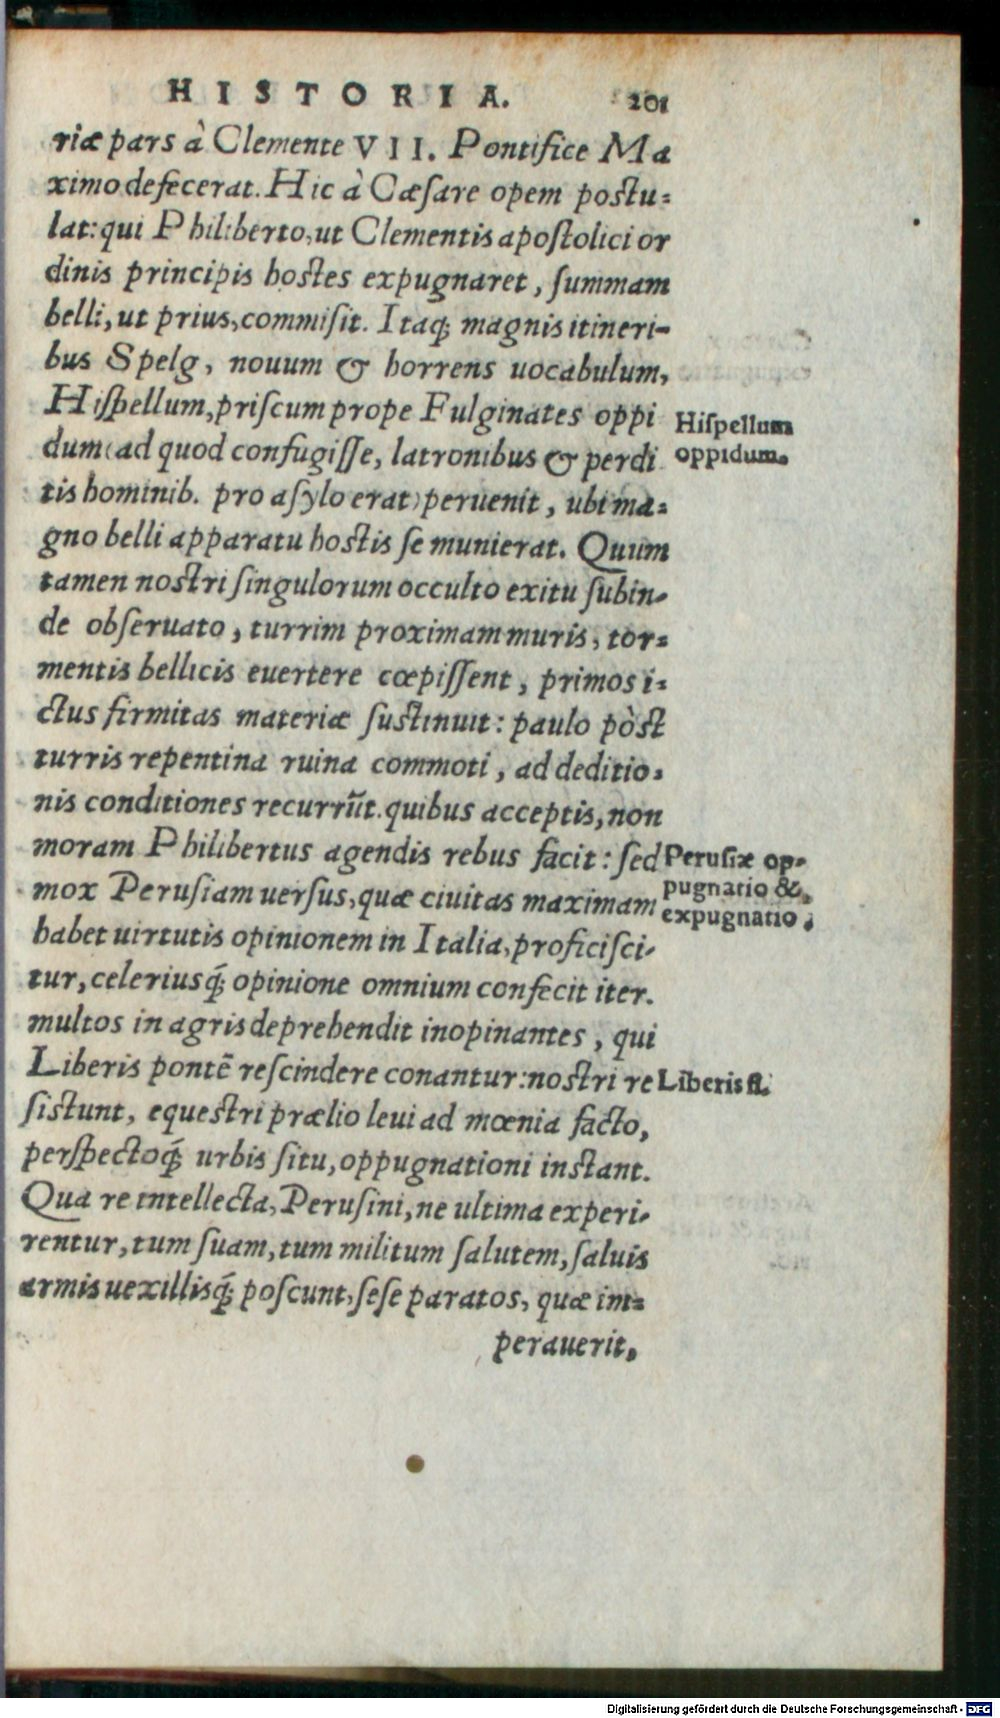 HISTORIA. 201
riæ pars à Clemente VII. Pontifice Ma
ximo defecerat. Hic à Cæſare opem poſtu-
lat: qui Philiberto, ut Clementis apoſtolici or
dinis principis hoſtes expugnaret, ſummam
belli, ut prius, commiſit. Itaq; magnis itineri-
bus Spelg, nouum & horrens uocabulum,
Hiſpellum, priſcum prope Fulginates oppi
dum (ad quod confugiſſe, latronibus & perdi
tis hominib. pro aſylo erat) peruenit, ubi ma-
gno belli apparatu hoſtis ſe munierat. Quum
tamen noſtri ſingulorum occulto exitu ſubin-
de obſeruato, turrim proximam muris, tor-
mentis bellicis euertere cœpiſſent, primos i-
ctus firmitas materiæ ſuſtinuit: paulo pòſt
turris repentina ruina commoti, ad deditio-
nis conditiones recurrũt. quibus acceptis, non
moram Philibertus agendis rebus facit: ſed
mox Peruſiam uerſus, quæ ciuitas maximam
habet uirtutis opinionem in Italia, proficiſci-
tur, celeriusq́; opinione omnium confecit iter.
multos in agris deprehendit inopinantes, qui
Liberis pontē reſcindere conantur: noſtri re
ſiſtunt, equeſtri prælio leui ad mœnia facto,
perſpectoq́; urbis ſitu, oppugnationi inſtant.
Qua re intellecta, Peruſini, ne ultima experi-
rentur, tum ſuam, tum militum ſalutem, ſaluis
armis uexillisq́; poſcunt, ſeſe paratos, quæ im-
perauerit,
Hiſpellum
oppidum.
Peruſiæ op-
pugnatio &
expugnatio.
Liberis fl.
Digitalisierung gefördert durch die Deutsche Forschungsgemeinschaft - DFG